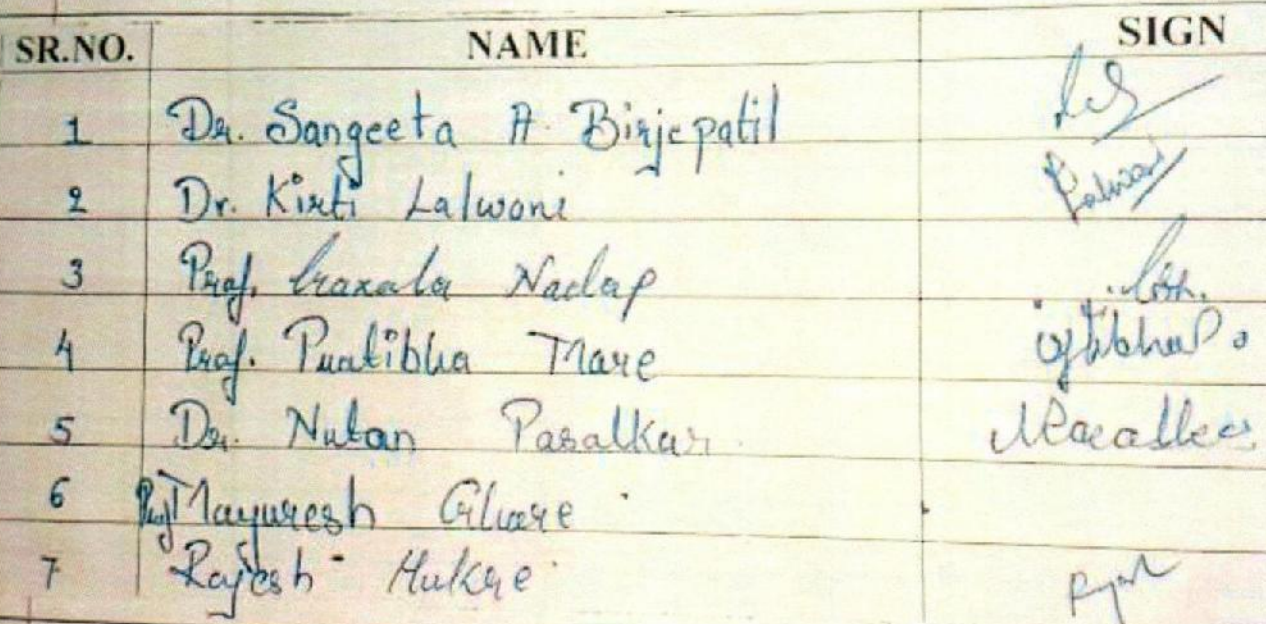 SR.NO. NAME SIGN
1 Dr. Sangeeta A. Birjepatil
2 Dr. Kirti Lalwani Lalwani
3 Prof. Nadaf
4 Prof. Pratibha More
5 Dr. Nutan Pasalkar
6 Prof Mayuresh Ghare
7 Rajesh Hukre